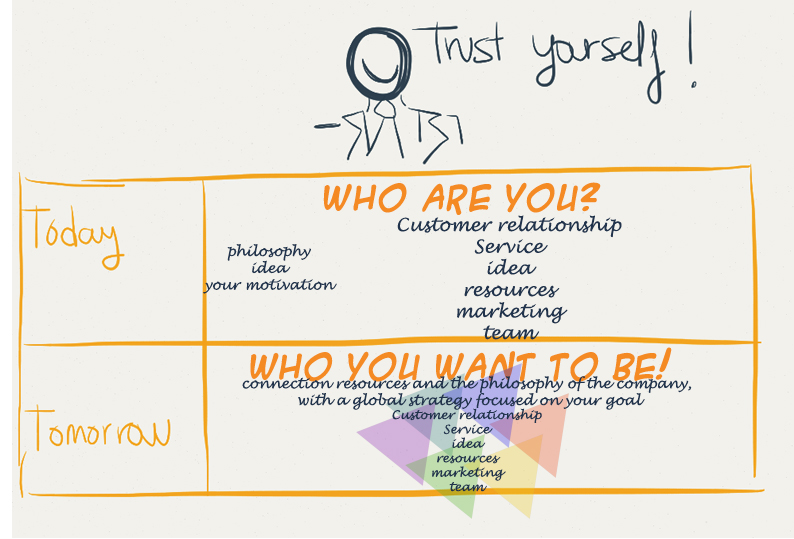 Trust yourself!
Today
WHO ARE YOU?
philosophy
idea
your motivation
Customer relationship
Service
idea
resources
marketing
team
Tomorrow
WHO YOU WANT TO BE!
connection resources and the philosophy of the company,
with a global strategy focused on your goal
Customer relationship
Service
idea
resources
marketing
team